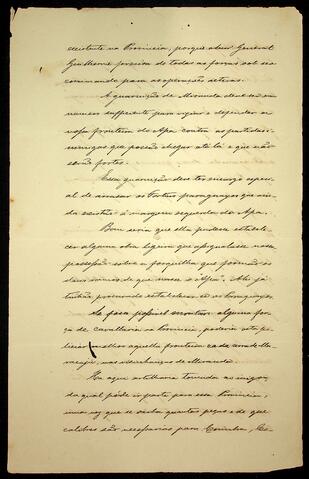 existente na Provincia, porque o bom General
Guilherme precisa de todas as forças sob seu
commando para as operações activas.
A guarnição de Miranda deve ser em
numero sufficiente para vigiar e defender a
nossa fronteira do Apa contra as partidas
inimigas que possão chegar até lá e que não
serão fortes.
Essa guarnição deve ter encargo especi-
al de arrasar os Fortins paraguayos que ain-
da existão á margem esquerda do Apa.
Bom seria que ella podesse estabele-
cer alguma obra ligeira que assignalasse nossa
possessão sobre a forquilha que formão os
dous ramos de que nasce o "Apa". Ahi já
tinhão procurado estabelecer-se os Paraguayos.
Se fosse possivel montar alguma for-
ça de cavallaria na Provincia, poderia esta po-
liciar melhor aquella fronteira
nas visinhanças de Miranda.
Ha aqui artilharia tomada ao inimigo
da qual póde ir parte para essa Provincia,
uma vez que se saiba quantas peças e de que
calibres são necessarias para Corumbá, Co-